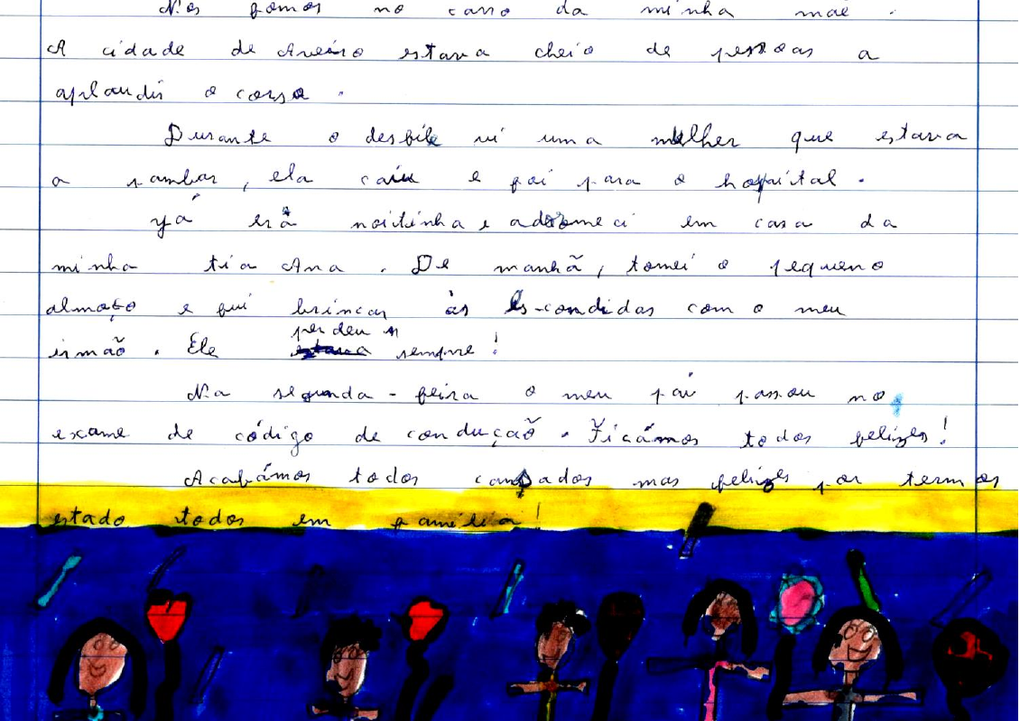 Nos fomos no carro da minha mãe.
A cidade de Aveiro estava cheio de pessoas a
aplaudir o corso.
Durante o desfile vi uma mulher que estava
a sambar, ela caiu e foi para o hospital.
Yá erã noitinha e adormeci em casa da
minha tia Ana. De manhã, tomei o pequeno
almoço e fui brincar às Es-condidas com o meu
irmão. Ele perdeu sempre!
Na segunda-feira o meu pai passou no
exame de código de condução. Ficámos todos felizes!
Acabámos todos cansados mas felizes por termos
estado todos em família!